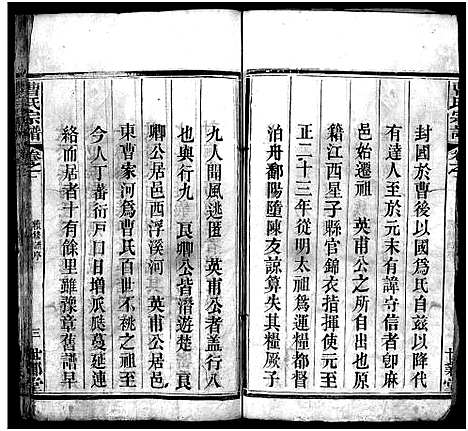 封國於曹後以國爲氏自茲以降代
有達人至於元末有諱守信者卽麻
邑始遷祖　英甫公之所自出也原
籍江西星子縣官錦衣指揮使元至
正二十三年從明太祖爲運糧都督
泊舟鄱陽墮陳友諒算失其糧厥子
九人聞風逃匿　英甫公者蓋行八
也與行九　良卿公皆潛遊楚　良
卿公居邑西浮溪河　英甫公居邑
東曹家河爲曹氏百世不祧之祖至
今人丁蕃衍戸口日增瓜瓞蔓延連
絡而居者十有餘里雖豫章舊譜早
曹氏宗譜
卷之
三